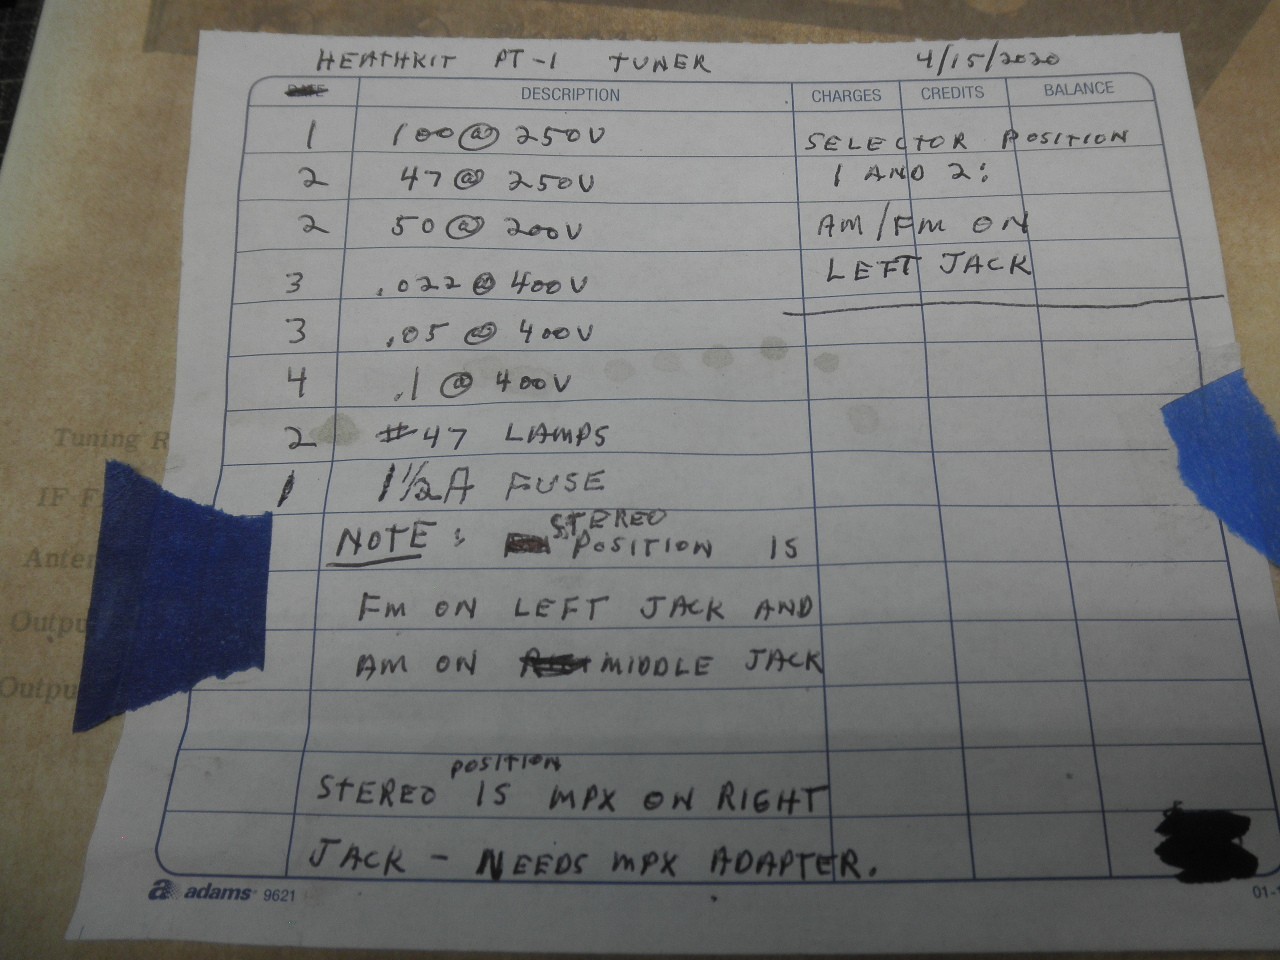 HEATHKIT PT-1 TUNER 4/15/2020
DESCRIPTION CHARGES CREDITS BALANCE
1 100 @ 250V
2 47 @ 250V
2 50 @ 200V
3 .022 @ 400V
3 .05 @ 400V
4 .1 @ 400V
2 #47 LAMPS
1 1 1/2A FUSE
SELECTOR POSITION
1 AND 2:
AM/FM ON
LEFT JACK
NOTE: STEREO
POSITION IS
FM ON LEFT JACK AND
AM ON MIDDLE JACK
STEREO POSITION IS MPX ON RIGHT
JACK - NEEDS MPX ADAPTER.
a adams 9621
01-
Tuning R
IF F
Anten
Outpu
Outpu